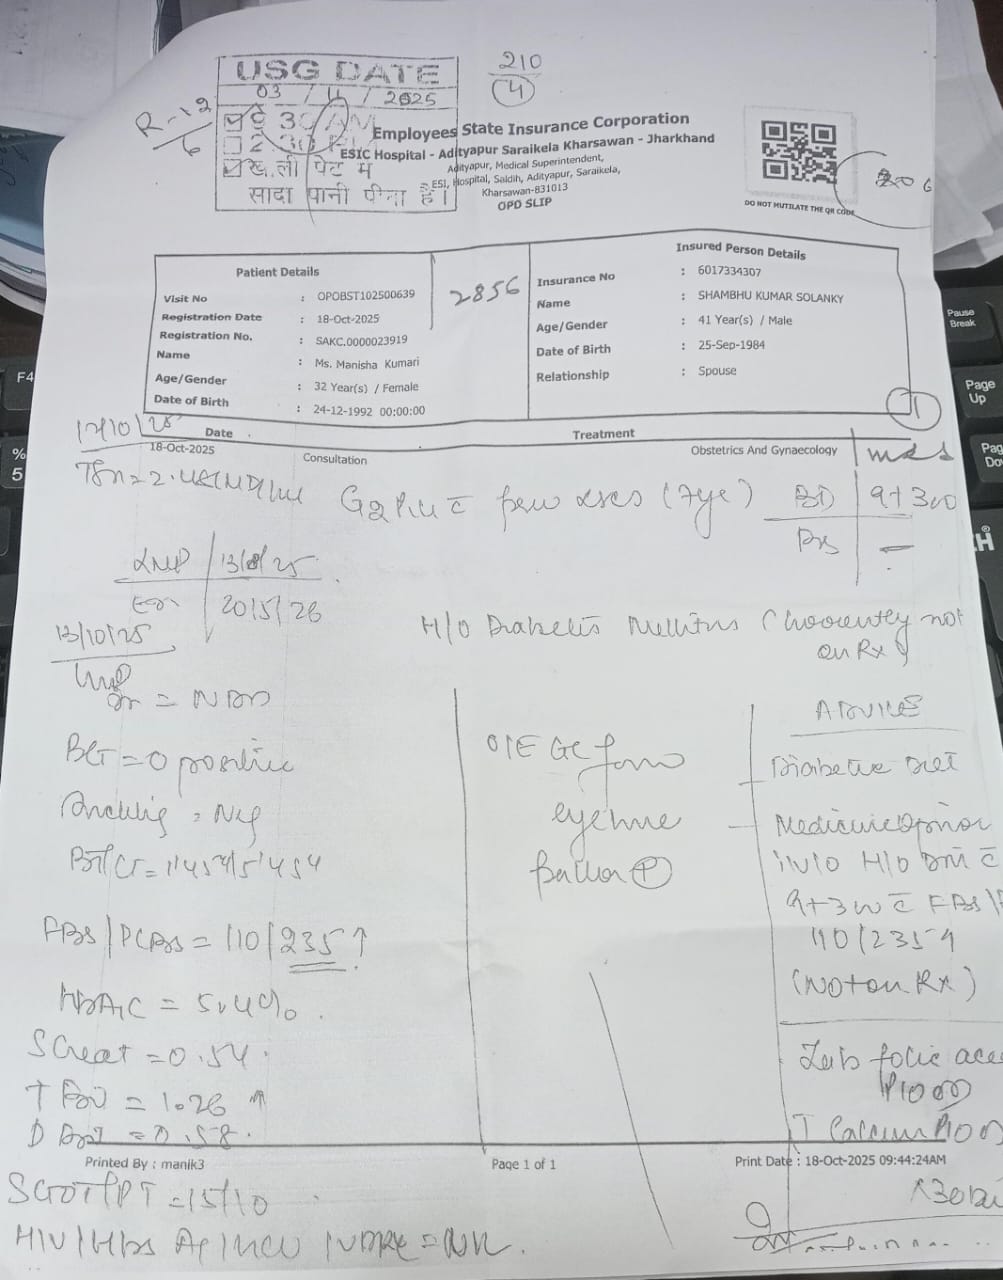 210
4
USG DATE
03 / 11 / 2025
R-12
6
9 30 AM
2 30
ख ली पेट में
सादा पानी पीना है।
Employees State Insurance Corporation
ESIC Hospital - Adityapur Saraikela Kharsawan - Jharkhand
Adityapur, Medical Superintendent,
ESI, Hospital, Saldih, Adityapur, Saraikela,
Kharsawan-831013
OPD SLIP
DO NOT MUTILATE THE QR CODE
Patient Details
Visit No : OPOBST102500639
Registration Date : 18-Oct-2025
Registration No. : SAKC.0000023919
Name : Ms. Manisha Kumari
Age/Gender : 32 Year(s) / Female
Date of Birth : 24-12-1992 00:00:00
2856
Insured Person Details
Insurance No : 6017334307
Name : SHAMBHU KUMAR SOLANKY
Age/Gender : 41 Year(s) / Male
Date of Birth : 25-Sep-1984
Relationship : Spouse
1
Date Treatment
18-Oct-2025 Consultation Obstetrics And Gynaecology
G2P1L1 c (7ye) 9+3w
LMP 13/8/25
20/5/26
13/10/25
H/O Diabetis Mellitus (not
on Rx)
= NAD
BG = O positive
= Neg
BT/CT = 1'45"/5'45"
FBS / PCBS = 110 / 235 ↑
HbA1C = 5.4%.
S Creat = 0.54.
T = 1.26 ↑
D = 0.58.
SGOT/PT = 15/10
HIV / HBs Ag / HCV / VDRL = NR.
O/E GC
ADVICE
Diabetic Diet
Medicine Opinion
i/v/o H/O DM c
9+3w c FBS/P
110/235
(Not on Rx)
Tab folic aci
T Calcium
Printed By : manik3 Page 1 of 1 Print Date : 18-Oct-2025 09:44:24AM